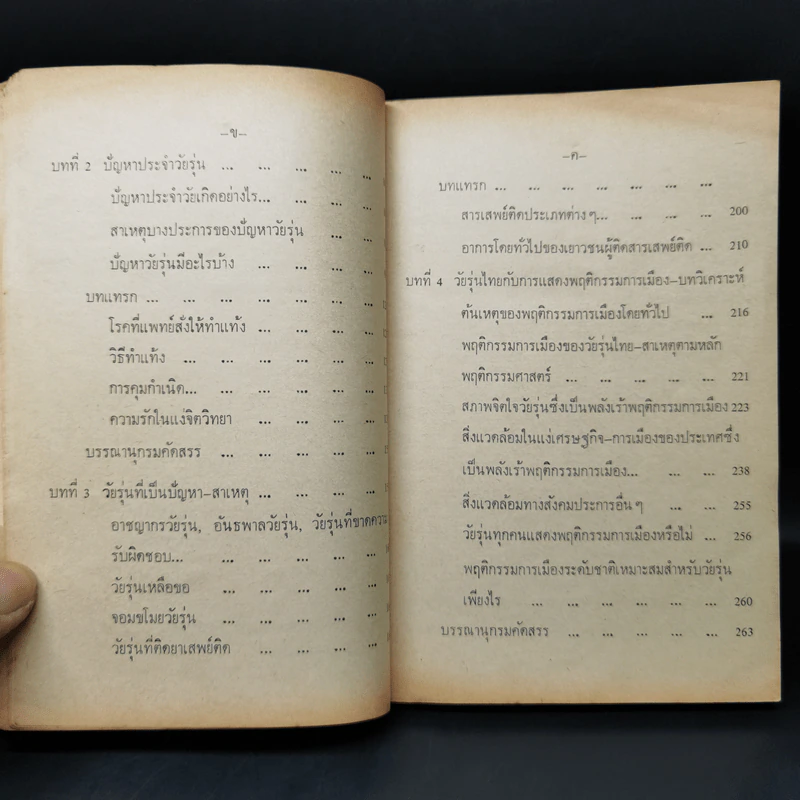 –ข–
บทที่ 2 ปัญหาประจำวัยรุ่น ... ... ... ... ...
ปัญหาประจำวัยเกิดอย่างไร... ... ... ...
สาเหตุบางประการของปัญหาวัยรุ่น ... ...
ปัญหาวัยรุ่นมีอะไรบ้าง ... ... ... ...
บทแทรก ... ... ... ... ... ...
โรคที่แพทย์สั่งให้ทำแท้ง ... ... ... ...
วิธีทำแท้ง ... ... ... ... ...
การคุมกำเนิด... ... ... ... ...
ความรักในแง่จิตวิทยา ... ... ... ...
บรรณานุกรมคัดสรร ... ... ... ... ...
บทที่ 3 วัยรุ่นที่เป็นปัญหา–สาเหตุ ... ... ... ...
อาชญากรวัยรุ่น, อันธพาลวัยรุ่น, วัยรุ่นที่ขาดความ
รับผิดชอบ... ... ... ... ... ...
วัยรุ่นเหลือขอ ... ... ... ... ...
จอมขโมยวัยรุ่น ... ... ... ... ...
วัยรุ่นที่ติดยาเสพย์ติด ... ... ... ...
–ค–
บทแทรก ... ... ... ... ... ... ...
สารเสพย์ติดประเภทต่าง ๆ... ... ... ... 200
อาการโดยทั่วไปของเยาวชนผู้ติดสารเสพย์ติด ... 210
บทที่ 4 วัยรุ่นไทยกับการแสดงพฤติกรรมการเมือง–บทวิเคราะห์
ต้นเหตุของพฤติกรรมการเมืองโดยทั่วไป ... 216
พฤติกรรมการเมืองของวัยรุ่นไทย–สาเหตุตามหลัก
พฤติกรรมศาสตร์ ... ... ... ... 221
สภาพจิตใจวัยรุ่นซึ่งเป็นพลังเร้าพฤติกรรมการเมือง 223
สิ่งแวดล้อมในแง่เศรษฐกิจ–การเมืองของประเทศซึ่ง
เป็นพลังเร้าพฤติกรรมการเมือง... ... ... 238
สิ่งแวดล้อมทางสังคมประการอื่น ๆ ... ... 255
วัยรุ่นทุกคนแสดงพฤติกรรมการเมืองหรือไม่ ... 256
พฤติกรรมการเมืองระดับชาติเหมาะสมสำหรับวัยรุ่น
เพียงไร ... ... ... ... ... 260
บรรณานุกรมคัดสรร ... ... ... ... 263